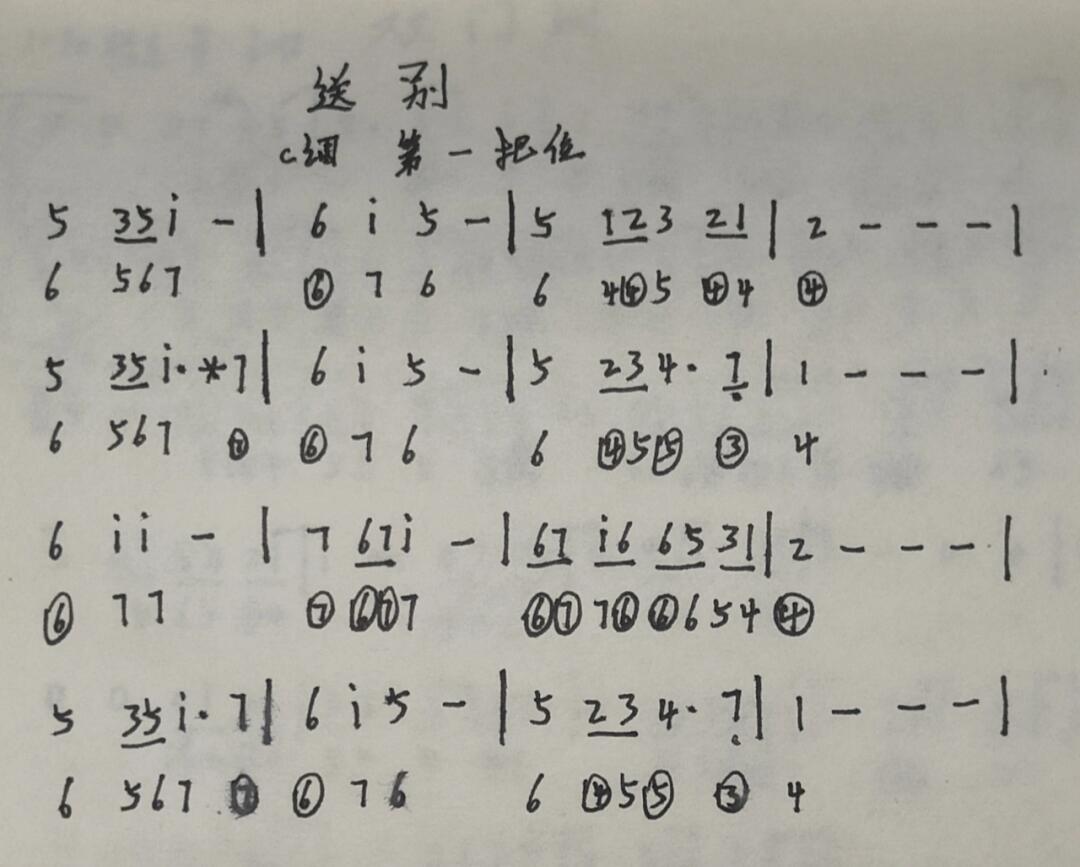 送别
C调 第一把位
5 35 i - | 6 i 5 - | 5 123 21 | 2 - - - |
6 567 ⑥ 7 6 6 4④5 ④4 ④
5 35 i· *7 | 6 i 5 - | 5 234· 7̣ | 1 - - - |
6 567 ⑦ ⑥ 7 6 6 ④5⑤ ③ 4
6 i i - | 7 67i - | 67 i6 65 31 | 2 - - - |
⑥ 77 ⑦ ⑥⑦7 ⑥⑦7⑥⑥654④
5 35 i· 7 | 6 i 5 - | 5 234· 7̣ | 1 - - - |
6 567 ⑦ ⑥ 7 6 6 ④5⑤ ③ 4